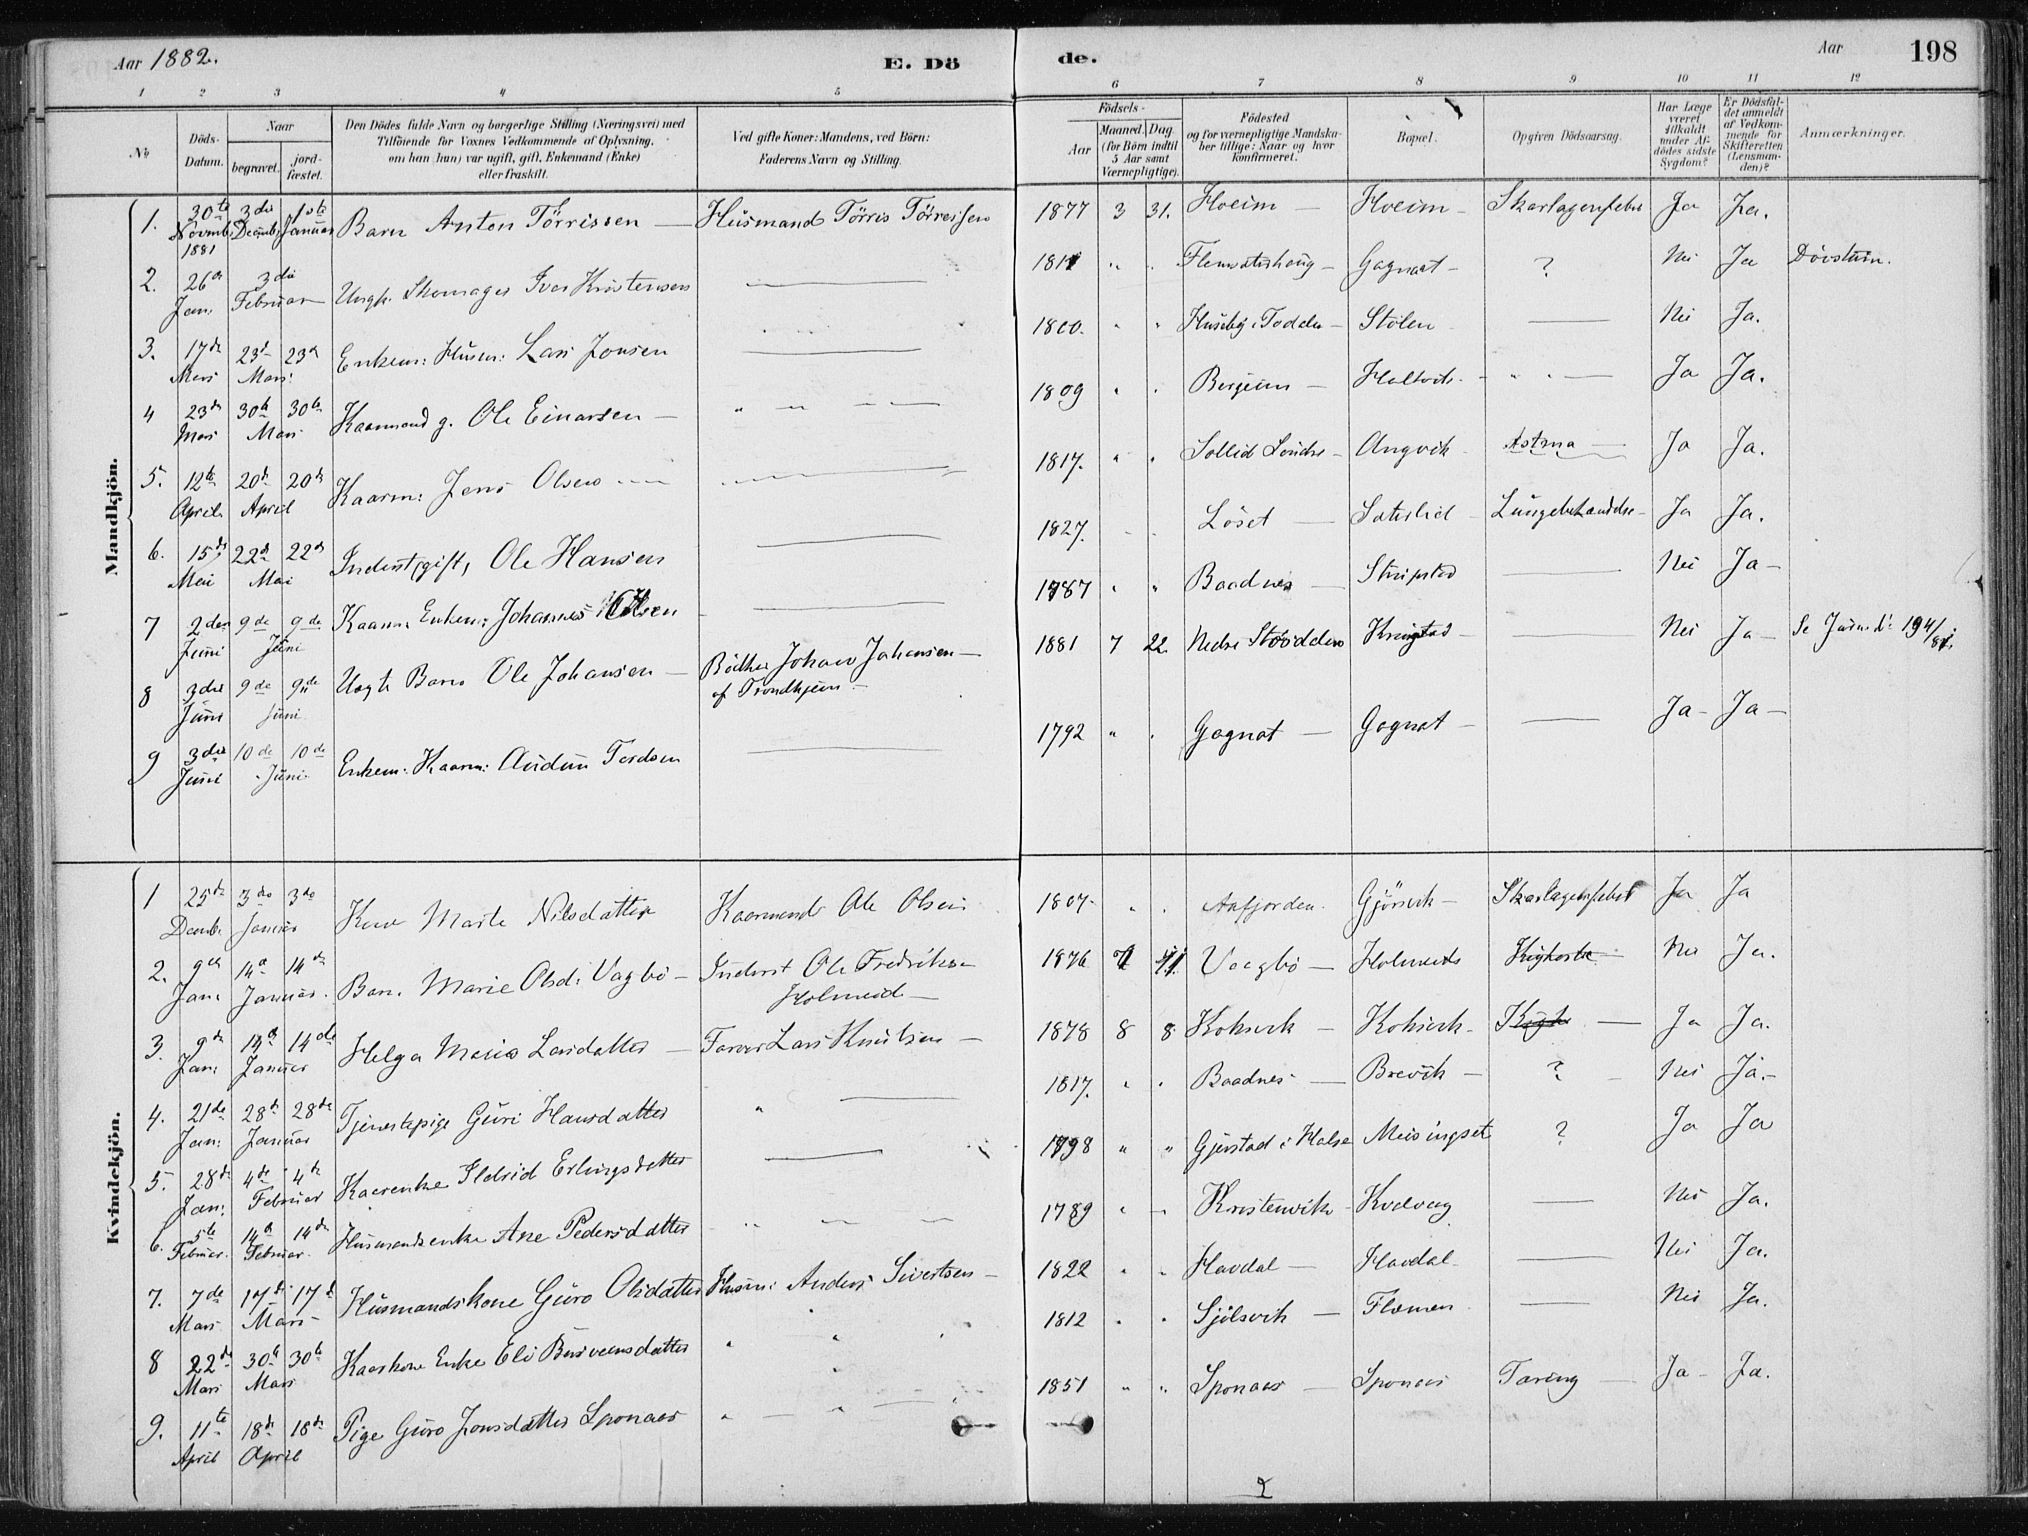 Aar 1882.
E. Dö
de.
Aar
198
1 2 3 4 5 6 7 8 9 10 11 12
No
Döds-Datum.
Naar
begravet.
jord-fæstet.
Den Dödes fulde Navn og borgerlige Stilling (Næringsvei) med
Tilföiende for Voxnes Vedkommende af Oplysning,
om han (hun) var ugift, gift, Enkemand (Enke)
eller fraskilt.
Ved gifte Koner: Mandens, ved Börn:
Faderens Navn og Stilling.
Födsels-
Aar
Maaned. Dag.
(for Börn indtil
5 Aar samt
Værnepligtige).
Födested
og for værnepligtige Mandska-
ber tillige: Naar og hvor
konfirmeret.
Bopæl.
Opgiven Dödsaarsag.
Har Læge
været
tilkaldt
under Af-
dödes sidste
Sygdom?
Er Dödsfal-
det anmeldt
af Vedkom-
mende for
Skifteretten
(Lensman-
den)?
Anmærkninger.
Mandkjön.
1. 30te Novmb. 1881 3die Decmb. 1ste Januar Barn Anton Törrissen — Husmand Törris Törresen 1877 3 31. Hoeim — Hoeim — Skarlagensfeber Ja Ja.
2. 26de Jan. 3die Februar Ungk. Skomager Iver Kristensen — 1811 " " — Gagnat — ? Nei Ja Dövstum.
3. 17de Mars 23de 23de Mars Enkem: Husm: Lars Jonsen — 1800. " " Huseby i Todalen — Stölen — Nei Ja.
4 23de Mars 30te 30te Mars Kaarmand g. Ole Einarsen — 1809 " " Bergeim — Holtvik — " " — Ja Ja.
5. 12te April 20de 20de April Kaarm: Jens Olsen — 1817. " " Sollid — Angvik Astma — Ja Ja.
6. 15de Mai 22de 22de Mai Inderst, gift, Ole Hansen — 1827. " " Löset — Saterlid — Ja Ja.
7 2den Juni 9de 9de Juni Kaarm. Enkem: Johannes Olsen — 1787 " " Baadnes — Stripstad — Nei Ja —
8 3die Juni 9de 9de Juni Uægte Barn Ole Johansen — Bödker Johan Johansen — af Trondhjem — 1881 7 22. Nedre Stöodden Kringstad — Nei Ja — Se Journ. 194/81.
9 3die Juni 10de 10de Juni Enkem: Kaarm: Audun Tordsen — 1792 " " Gagnat — Gagnat — Ja — Ja —
Kvindekjön.
1 25de Decmb. 3die 3die Januar Kone Marte Nilsdatter Kaarmand Ole Olsen 1807 " " Aafjorden. Gjörvik — Skarlagensfeber Ja Ja
2. 9de Jan. 14de 14de Januar. Barn. Marie Olsd. Vagbö — Inderst Ole Fredriksen Holmeid — 1876 7 11 Vaagbö — Holmeide Kighoste — Nei Ja.
3. 9de Jan: 14de 14de Januar Helga Maria Larsdatter — Farver Lars Knutsen — 1878 8 8 Kohsvik — Kohsvik — Kighe — Ja Ja.
4. 21de Jan: 28de 28de Januar Tjenestepige Guri Hansdatter " — 1817. " " Baadnes — Brevik — ? — Nei Ja. —
5. 28de Jan: 4de 4de Februar Kaarenke Ildrid Erlingsdatter — 1798 " " Gjerstad i Halse Meisingset ? Ja Ja
6. 5te Februar. 14de 14de Februar. Husmandsenke Ane Pedersdatter " — — 1789 " " Kristenvik — Kvalvaag — Nei Ja.
7. 7de Mars 17de 17de Mars — Husmandskone Guro Olsdatter Husm: Anders Sivertsen — 1822 " " Havdal — Havdal — Nei Ja.
8 22de Mars 30te 30te Mars Kaarkone Enke Eli " " " 1812 " " Sjölsvik — Flemen — Nei Ja.
9. 11te April 18de 18de April Pige Guro Jonsdatter Sponaas " — " — 1851 " " Sponaas — Sponaas Tæring — Ja — Ja.
2